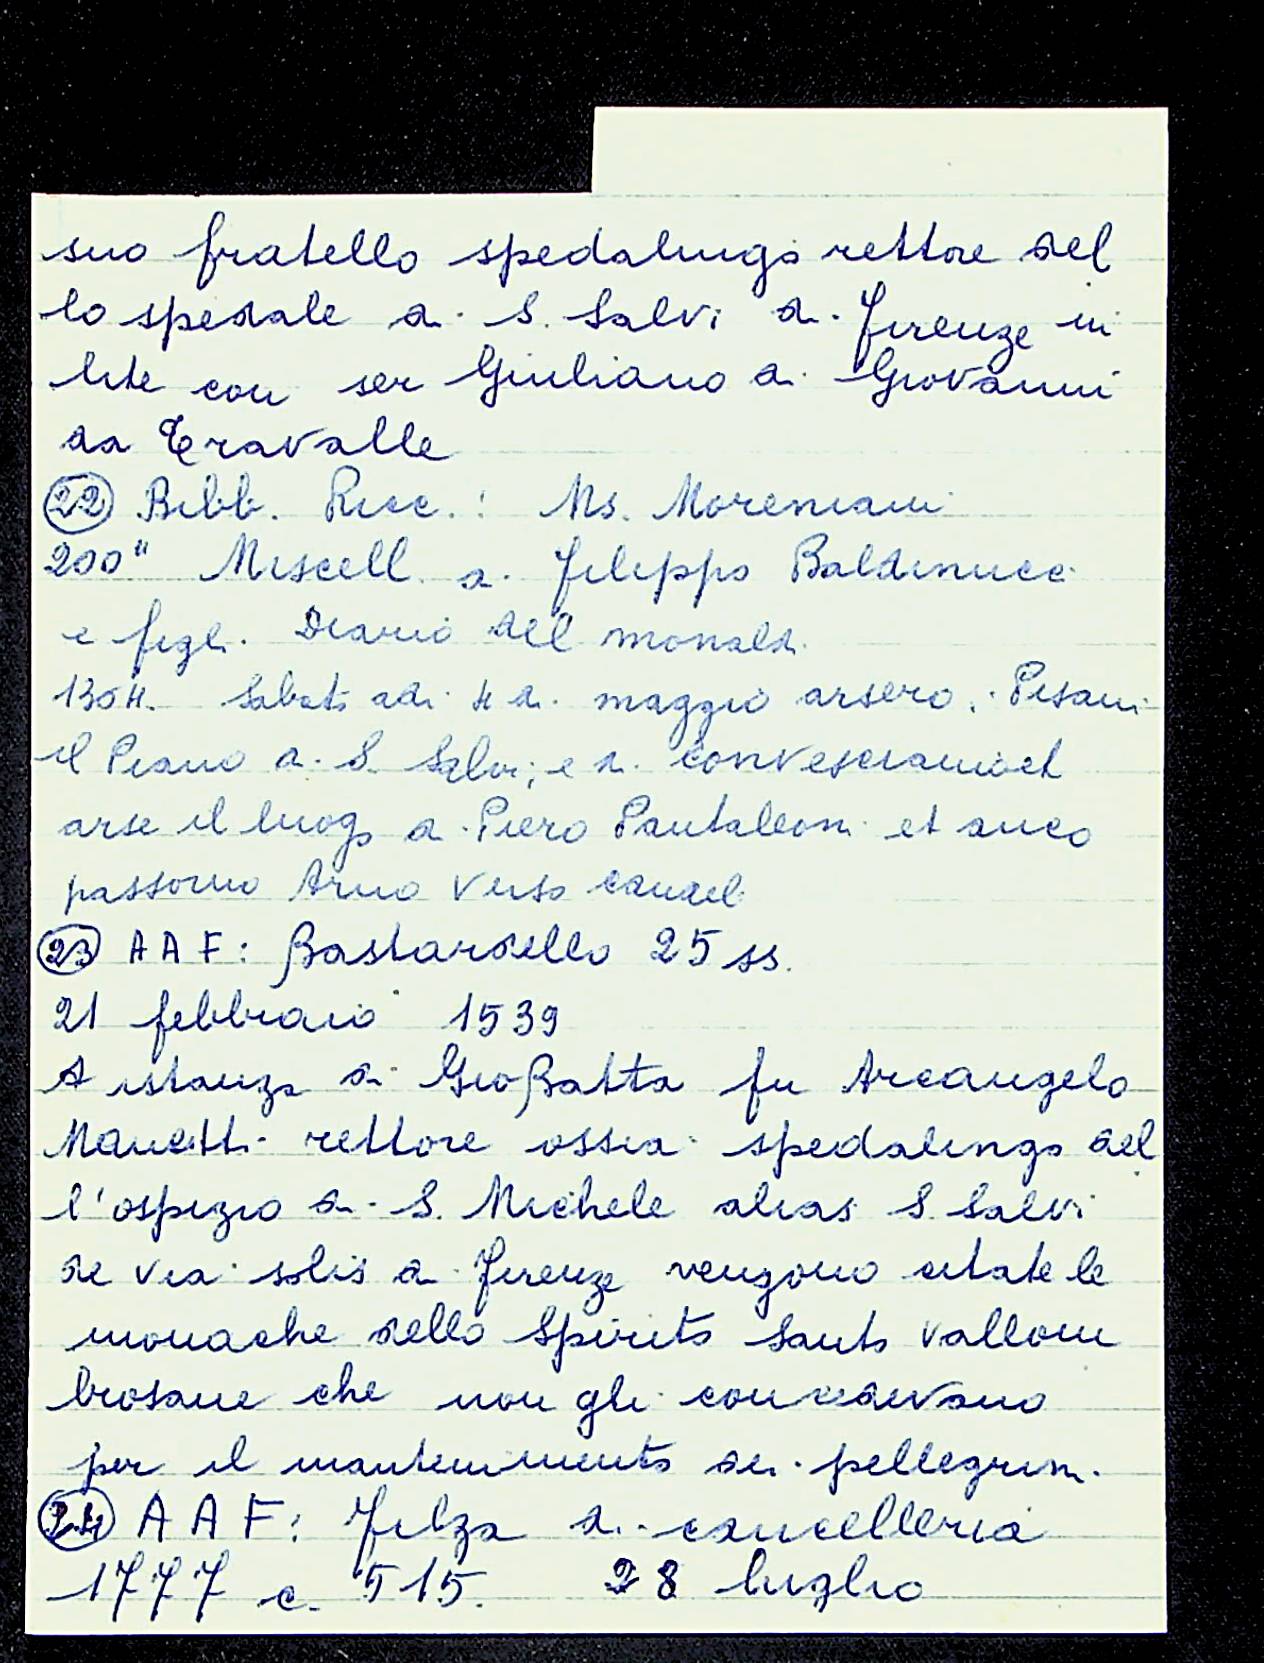 suo fratello spedalingo rettore del
lo spedale di S. Salvi di Firenze in
lite con ser Giuliano di Giovanni
da Travalle
22 Bibb. Ricc.: Ms. Moreniani
200" Miscell. di Filippo Baldinucci
e figli. Diario del monaldi
1304. Sabato adi 4 di maggio arsero i Pisani
il Piano di S. Salvi, e di et
arse il luogo di Piero Pantaleoni et anco
passorno Arno verso
23 AAF: Bastardello 25 ss.
21 febbraio 1539
A istanza di GioBatta fu Arcangelo
Manetti rettore ossia spedalingo del
l'ospizio di S. Michele alias S. Salvi
de via solis di Firenze vengono citate le
monache dello Spirito Santo vallom
brosane che non gli
per il mantenimento dei pellegrini
24 AAF: Filza di cancelleria
1777 c. 515. 28 luglio